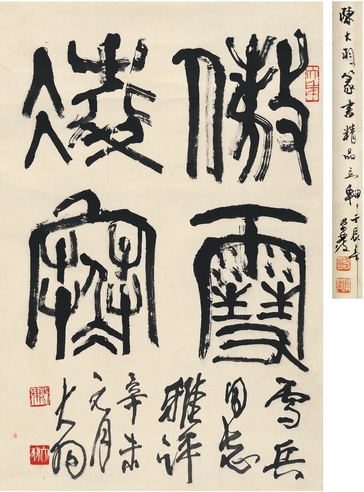 傲雪
凌寒
雪兵
同志
雅評
辛未
元月
大羽
陳大羽篆書精品立軸
壬辰春